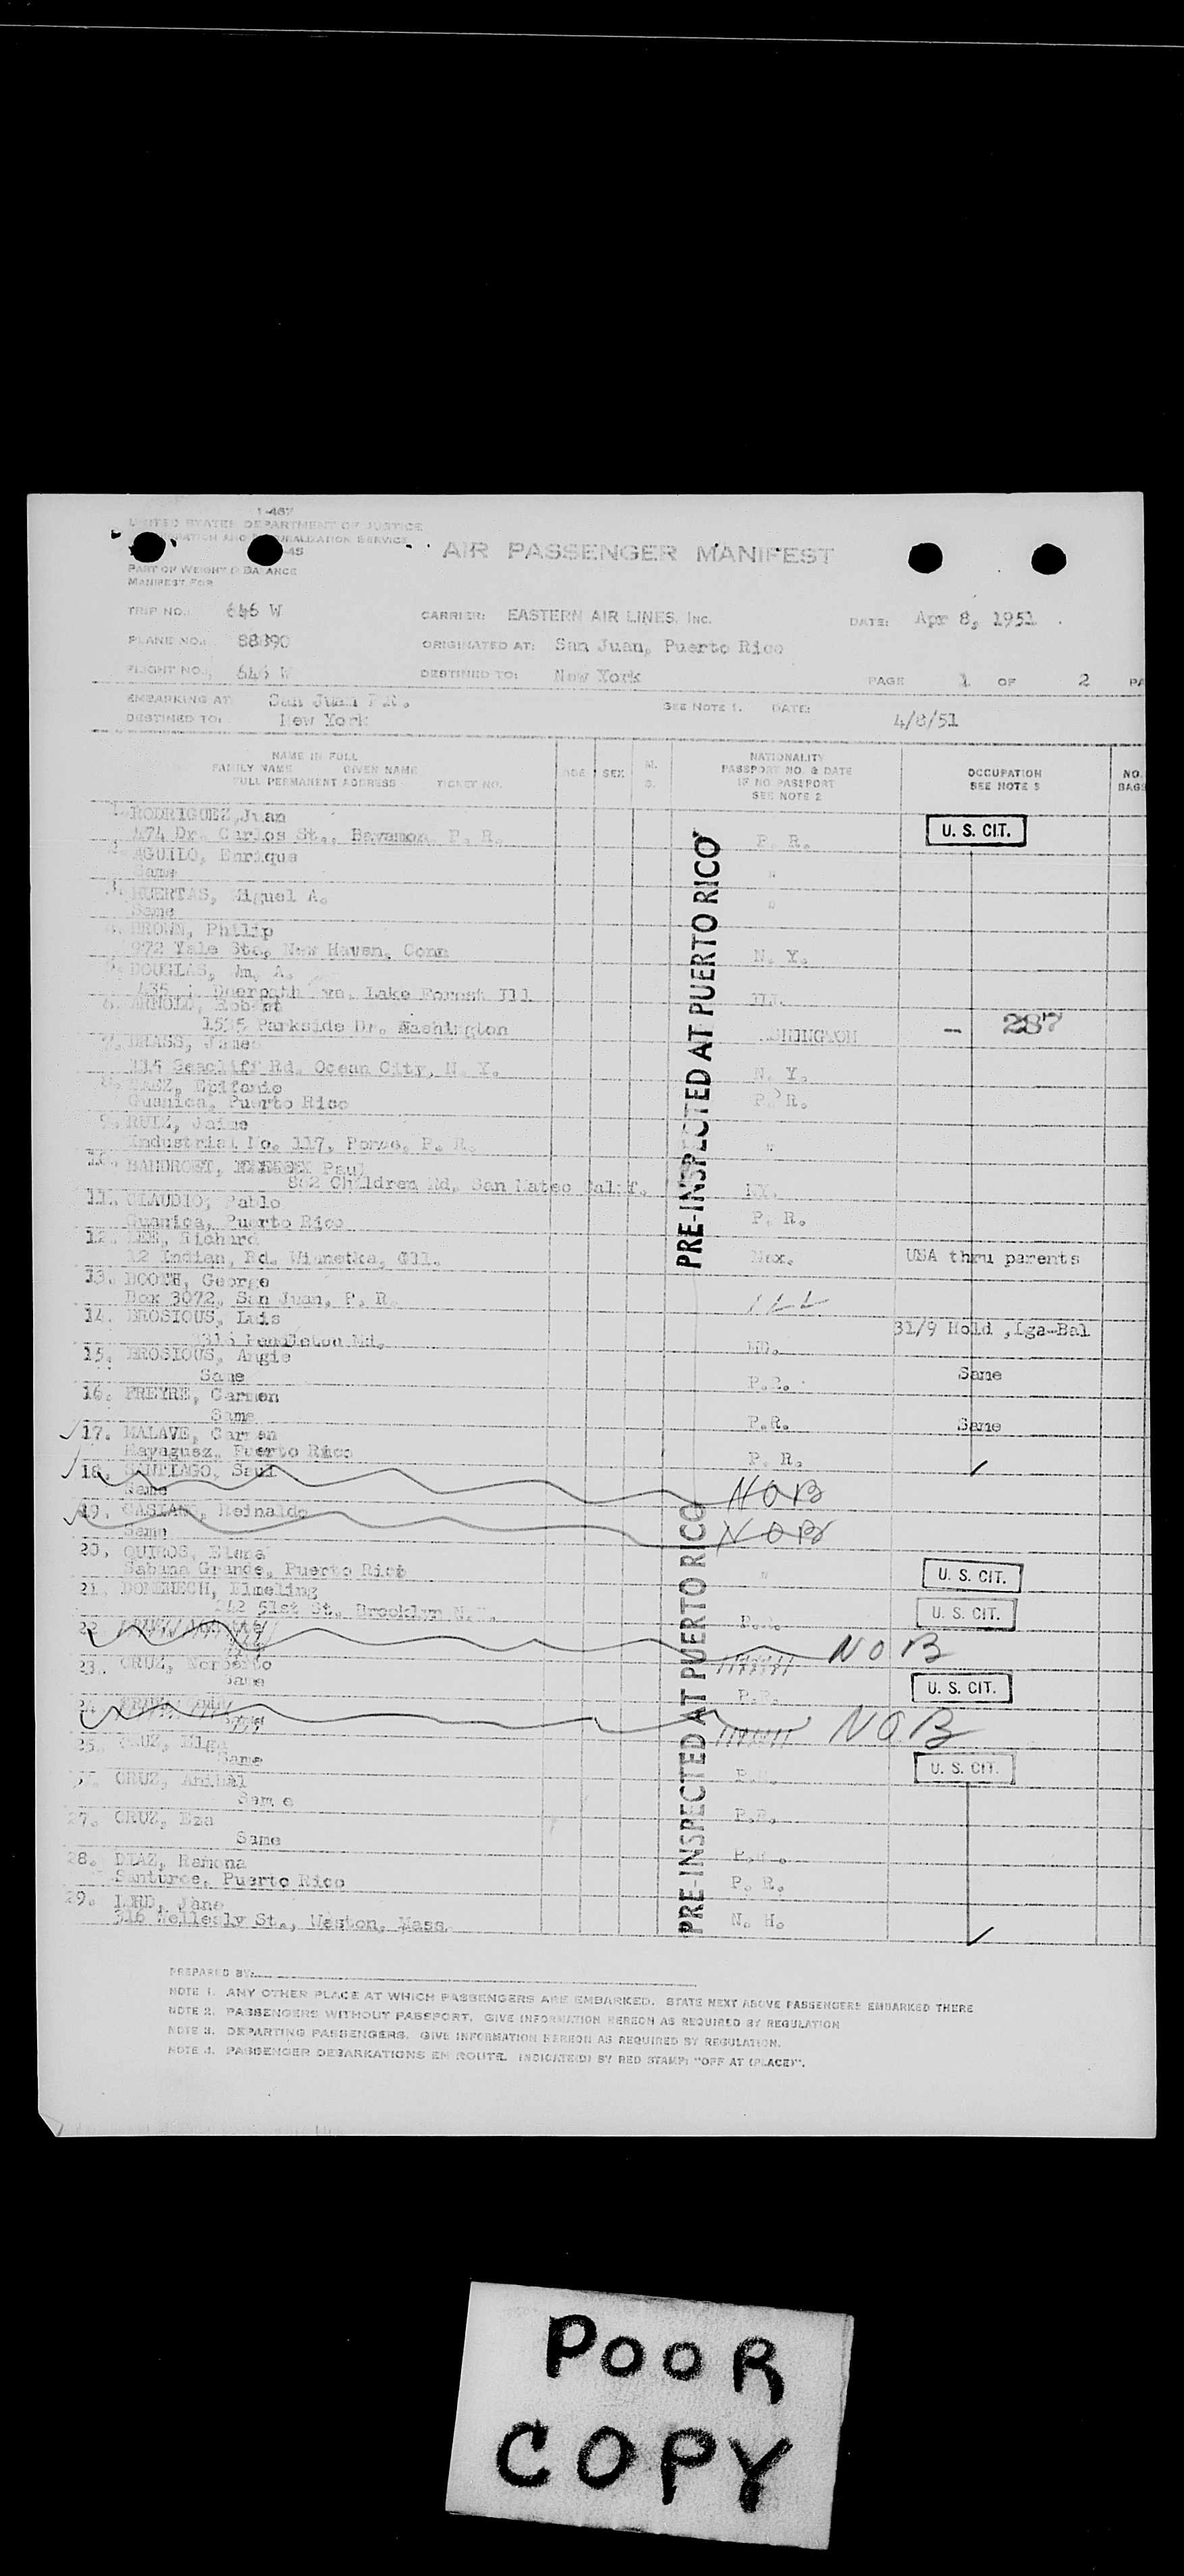 1-467
UNITED STATES DEPARTMENT OF JUSTICE
IMMIGRATION AND NATURALIZATION SERVICE
AIR PASSENGER MANIFEST
PART OF WEIGHT & BALANCE
MANIFEST FOR
TRIP NO.: 646 W CARRIER: EASTERN AIR LINES, INC. DATE: Apr 8, 1951
PLANE NO.: 88890 ORIGINATED AT: San Juan, Puerto Rico
FLIGHT NO.: 646 W DESTINED TO: New York PAGE 1 OF 2 PA
EMBARKING AT San Juan P.R. SEE NOTE 1. DATE:
DESTINED TO: New York 4/8/51
NAME IN FULL
FAMILY NAME GIVEN NAME
FULL PERMANENT ADDRESS TICKET NO.
AGE SEX M. S.
NATIONALITY
PASSPORT NO. & DATE
IF NO PASSPORT
SEE NOTE 2
OCCUPATION
SEE NOTE 3
NO.
BAGS
1. RODRIGUEZ, Juan
474 Dr. Carlos St., Bayamon, P. R. P. R. U. S. CIT.
AGUILO, Enrique
Same "
HUERTAS, Miguel A.
Same "
BROWN, Philip
972 Yale Sta, New Haven, Conn N. Y.
DOUGLAS, Wm. A.
435 Deerpath Lake Forest Ill ILL.
6. ARNOLD, Robert
1535 Parkside Dr. Washington WASHINGTON - 287
7. James
Seacliff Rd. Ocean City, N. Y. N. Y.
Guanica, Puerto Rico P. R.
9. RUIZ, Jaime
Industrial No. 117, Ponce, P. R. "
10. Paul
862 Children Rd, San Mateo Calif.
11. CLAUDIO, Pablo
Guanica, Puerto Rico P. R.
12. LEE, Richard
12 Indian, Rd. Winnetka, Ill. Mex. USA thru parents
13. BOOTH, George
Box 3072, San Juan, P. R. ILL
14. BROSIOUS, Luis
Pendleton Md. MD. 31/9 Hold ,Lga-Bal
15. BROSIOUS, Angie
Same P.R. Same
16. FREYRE, Carmen
Same P.R. Same
17. MALAVE, Carmen
Mayaguez, Puerto Rico P. R.
18. SANTIAGO, Saul
Same NOB
19. Reinaldo
Same NOB
20. QUIROS, Elena
Sabana Grande, Puerto Rico " U. S. CIT.
21. DOMENECH, Elmeling
51st St. Brooklyn N.Y. P.R. U. S. CIT.
22. NOB
23. CRUZ, Norberto
Same P.R. U. S. CIT.
24. NOB
25. CRUZ, Elga
Same P.R. U. S. CIT.
CRUZ, Anibal
Same P.R.
27. CRUZ, Eza
Same P.R.
28. DIAZ, Ramona
Santurce, Puerto Rico P. R.
29. LORD, Jane
316 Wellesly St., Weston, Mass. N. H.
PRE-INSPECTED AT PUERTO RICO
PRE-INSPECTED AT PUERTO RICO
PREPARED BY:
NOTE 1. ANY OTHER PLACE AT WHICH PASSENGERS ARE EMBARKED. STATE NEXT ABOVE PASSENGERS EMBARKED THERE
NOTE 2. PASSENGERS WITHOUT PASSPORT. GIVE INFORMATION HEREON AS REQUIRED BY REGULATION
NOTE 3. DEPARTING PASSENGERS. GIVE INFORMATION HEREON AS REQUIRED BY REGULATION.
NOTE 4. PASSENGER DEBARKATIONS EN ROUTE. INDICATE(D) BY RED STAMP: "OFF AT (PLACE)".
POOR
COPY